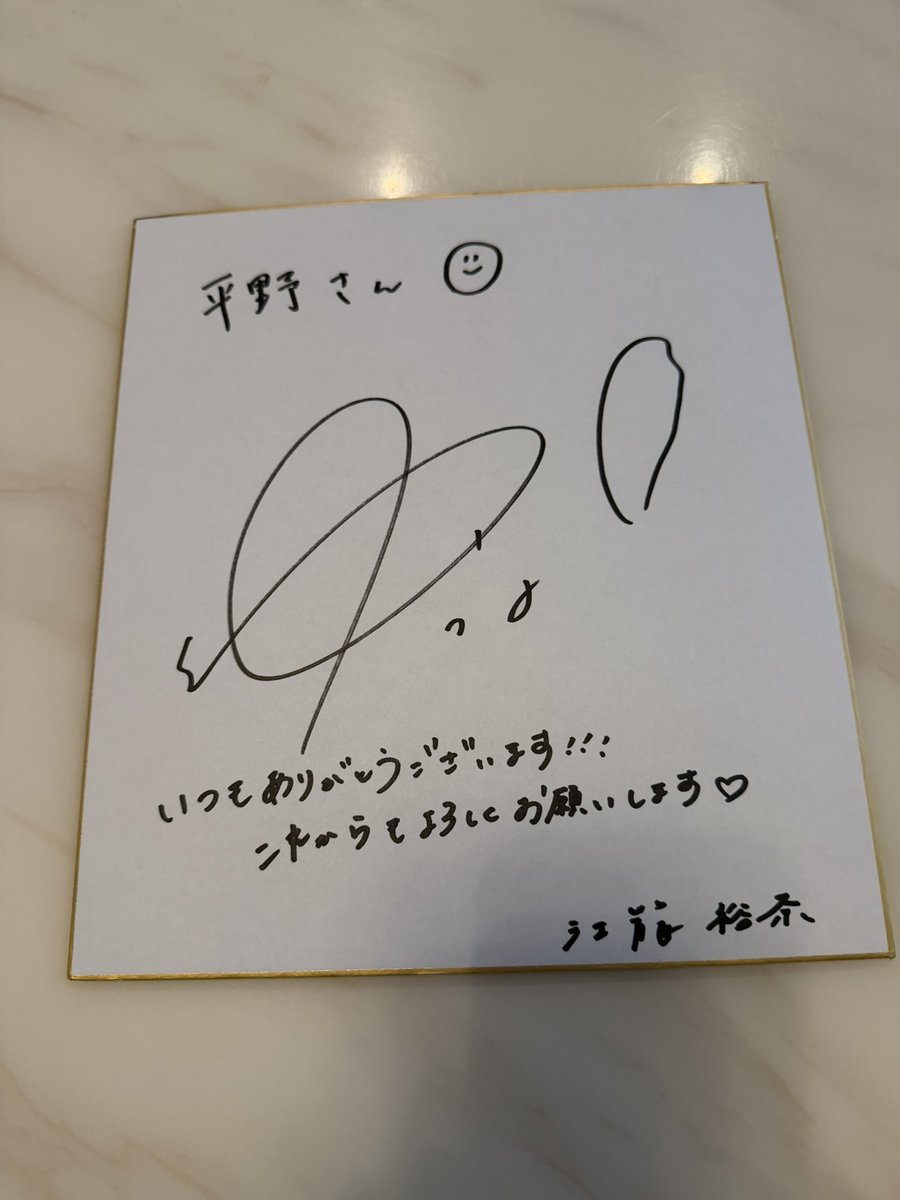 平野さん
いつもありがとうございます!!!
これからもよろしくお願いします♡
裕奈